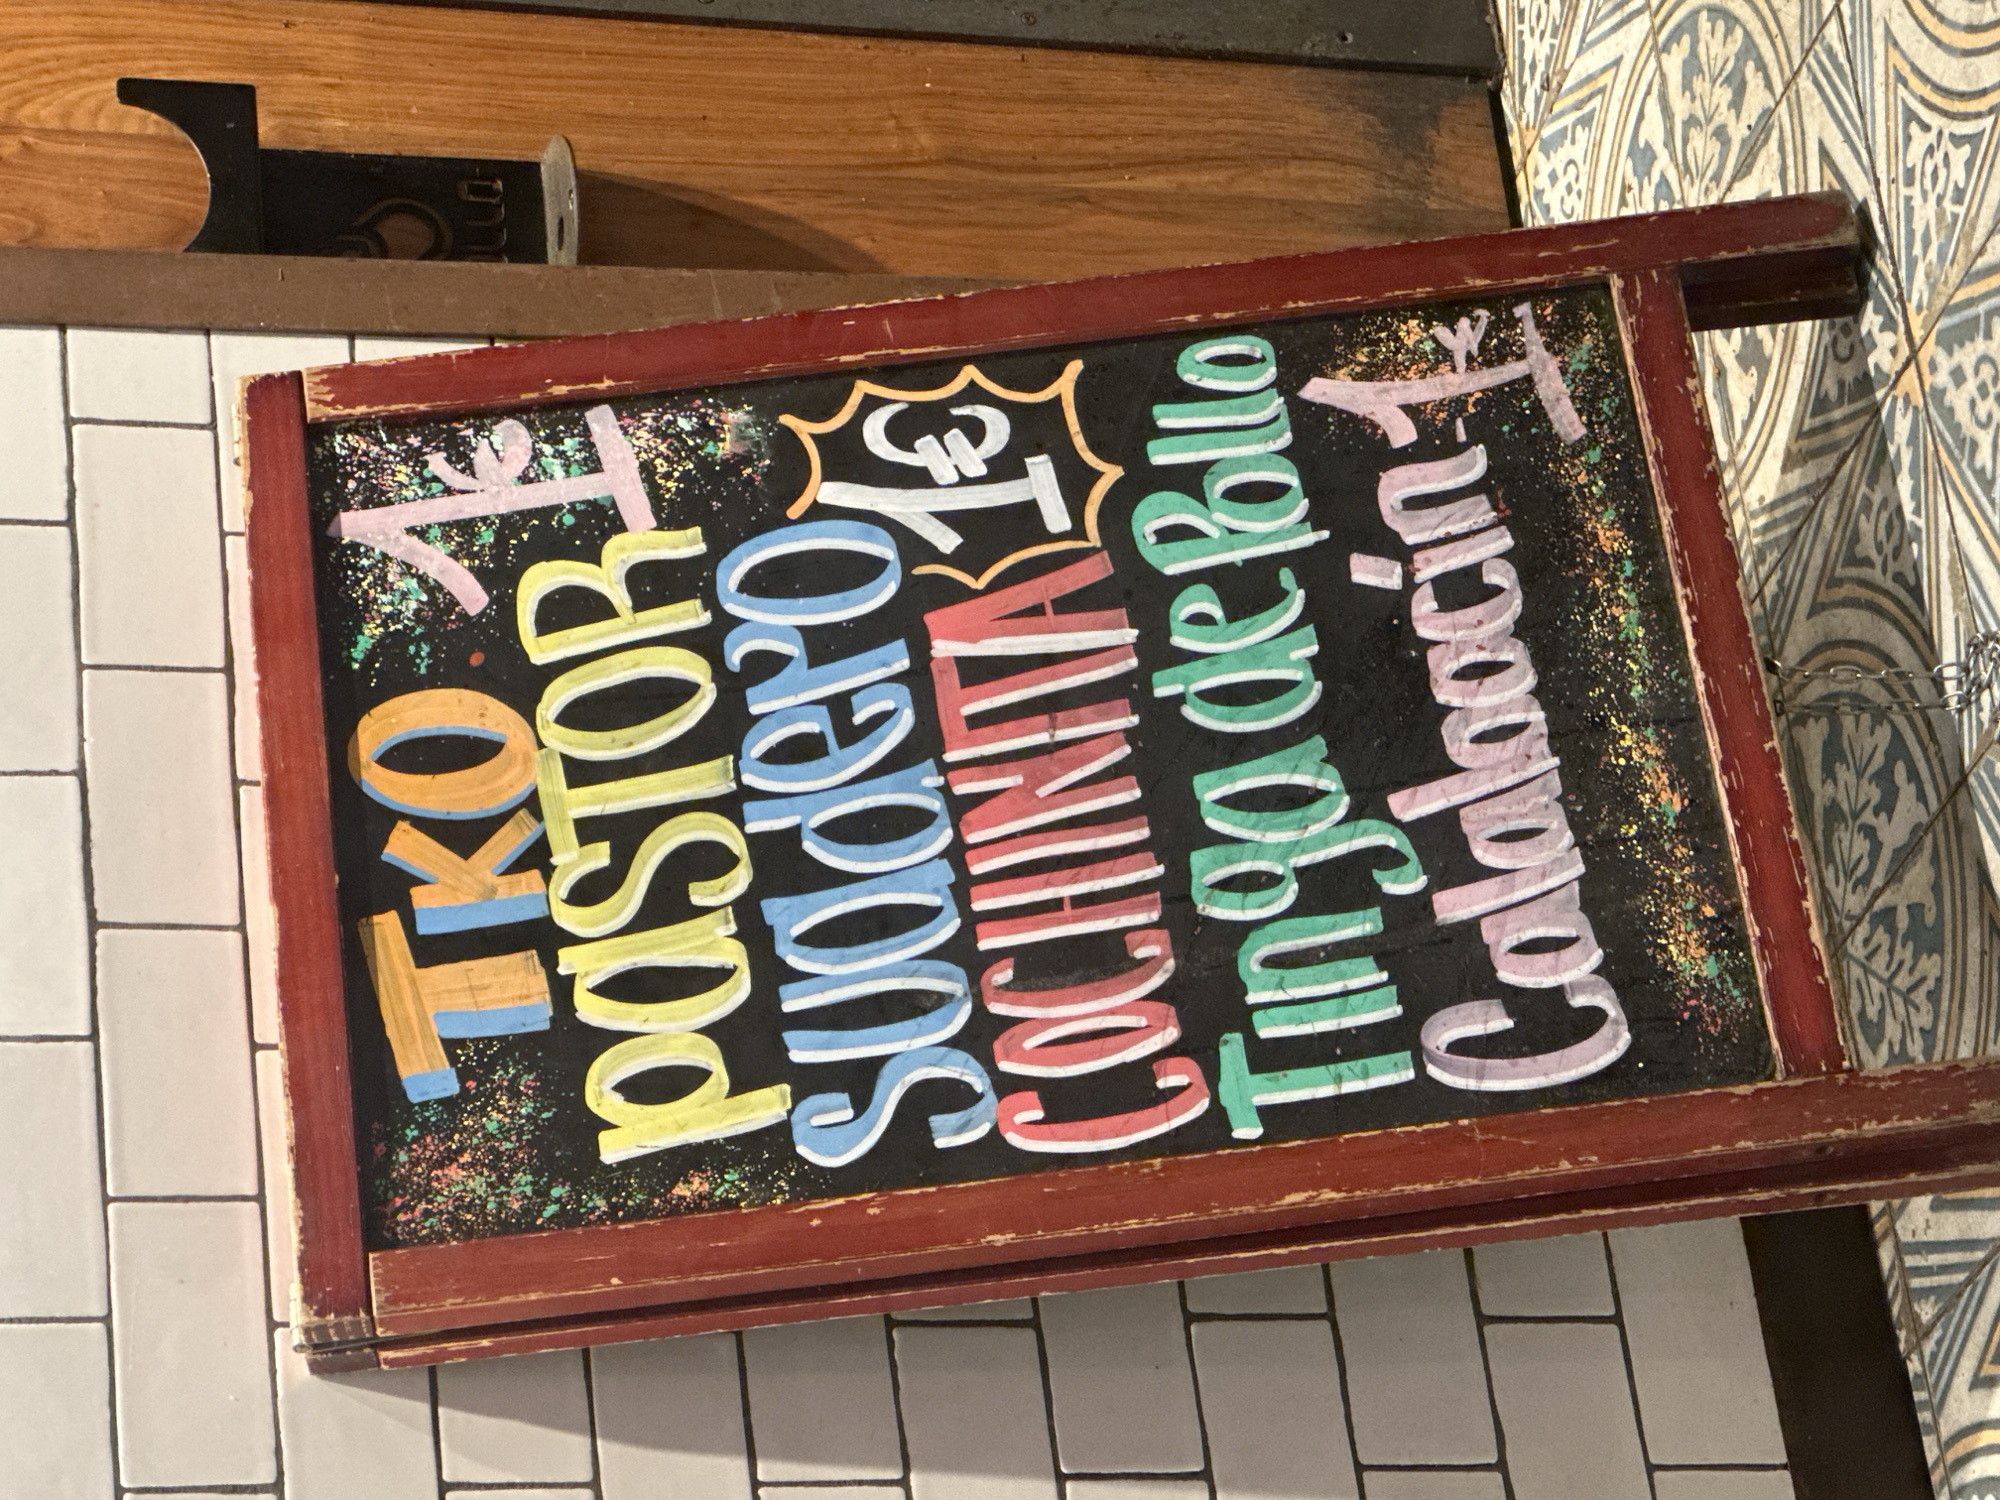 TKO 1€
pASTOR
SuAdeRO 1€
COCHINITA
Tinga de Pollo
Calabacin 1€